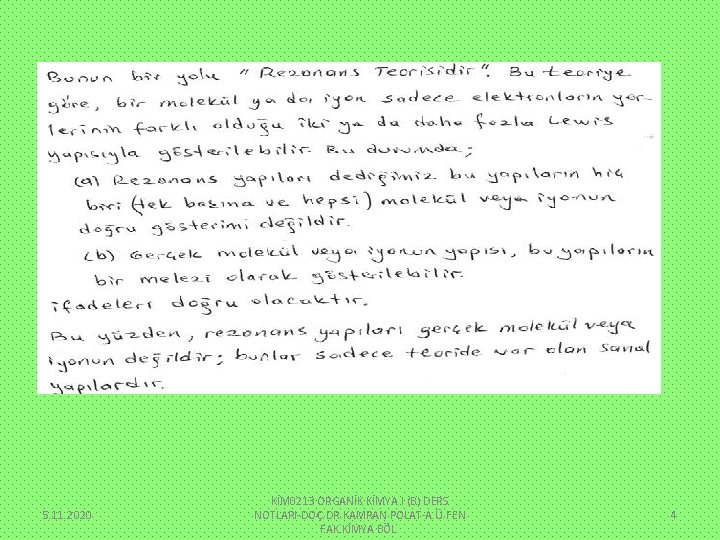 Bunun bir yolu "Rezonans Teorisidir". Bu teoriye
göre, bir molekül ya da iyon sadece elektronların yer-
lerinin farklı olduğu iki ya da daha fazla Lewis
yapısıyla gösterilebilir. Bu durumda;
(a) Rezonans yapıları dediğimiz bu yapıların hiç
biri (tek başına ve hepsi) molekül veya iyonun
doğru gösterimi değildir.
(b) Gerçek molekül veya iyonun yapısı, bu yapıların
bir melezi olarak gösterilebilir.
ifadeleri doğru olacaktır.
Bu yüzden, rezonans yapıları gerçek molekül veya
iyonun değildir; bunlar sadece teoride var olan sanal
yapılardır.
5.11.2020
KİM0213 ORGANİK KİMYA I (B) DERS
NOTLARI-DOÇ.DR.KAMRAN POLAT-A.Ü.FEN
FAK.KİMYA BÖL
4